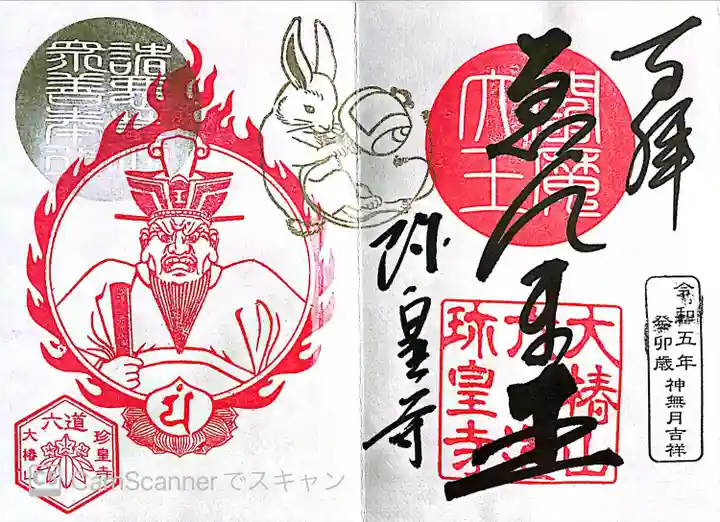 百拝
閻魔
大王
ゑんま王
大椿山
六道
珍皇寺
珎皇寺
令和五年
癸卯歳 神無月吉祥
諸悪莫作
衆善奉行
王
六道
珍皇寺
大椿山
CamScanner でスキャン